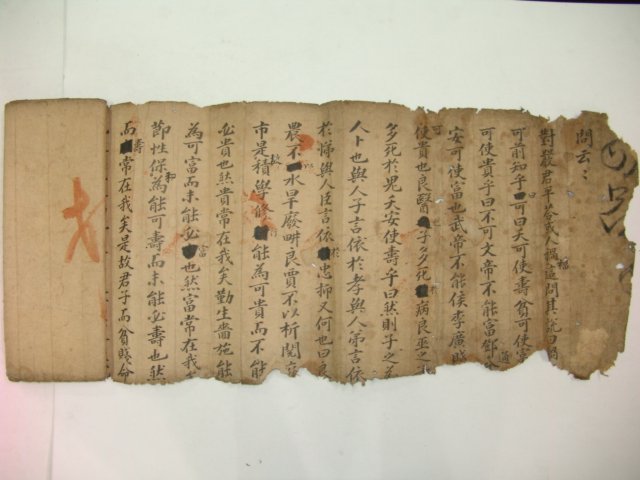 問云〻
對嚴君平答或人禍福問其說曰
可前知乎曰可曰夭可使壽貧可使富
可使貴乎曰不可文帝不能富鄧通
安可使富也武帝不能侯李廣賤
使貴也良醫子多死病良巫之子
多死於鬼夭安使壽乎曰然則子之為
人卜也與人子言依於孝與人弟言依
於悌與人臣言依於忠抑又何也曰良
農不水旱廢畊良賈不以折閱容
市是故積學修行能為可貴而不能
必貴也然貴常在我矣勤生嗇施能
為可富而未能必富也然富常在我
節性保和為能可壽而未能必壽也然
而壽常在我矣是故君子而貧賤命